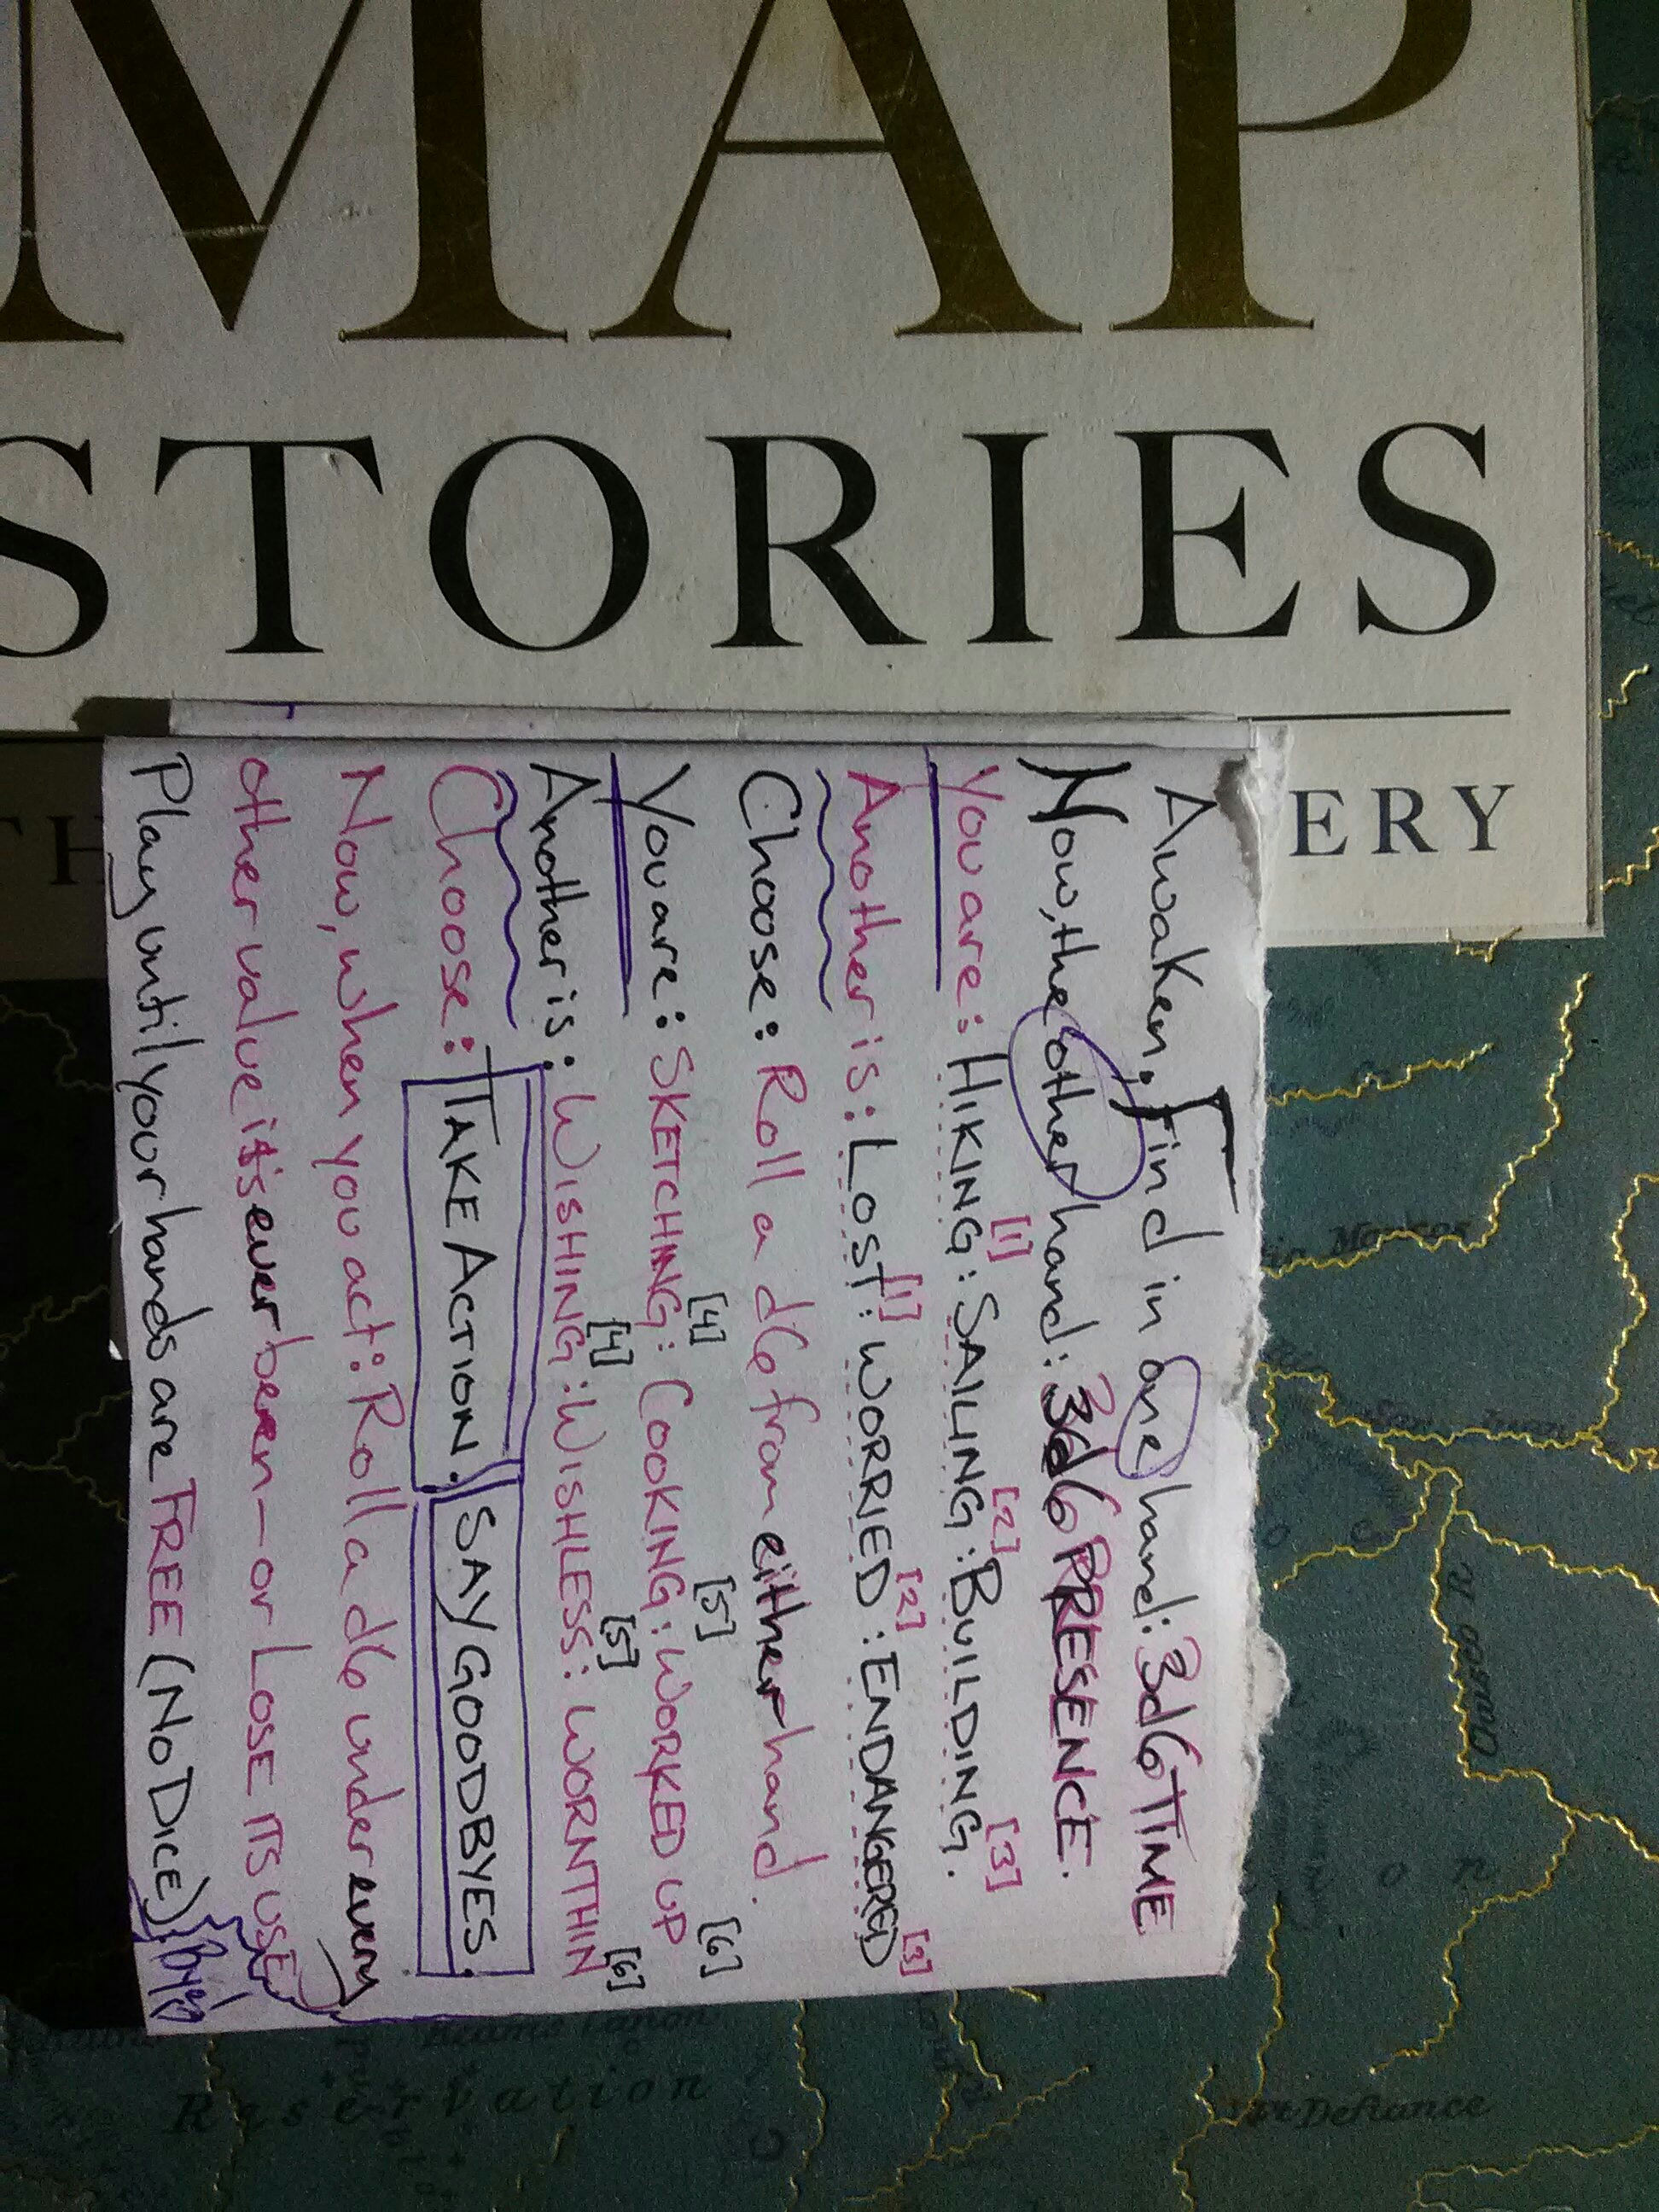 MAP
STORIES
ERY
TH
Awaken. Find in one hand: 3d6 TIME
Now, the other hand: 3d6 PRESENCE.
You are: HIKING [1] : SAILING [2] : BUILDING. [3]
Another is: LOST [1] : WORRIED [2] : ENDANGERED [3]
Choose: Roll a d6 from either hand.
You are: SKETCHING [4] : COOKING [5] : WORKED UP [6]
Another is: WISHING [4] : WISHLESS [5] : WORN THIN [6]
Choose: TAKE ACTION. SAY GOODBYES.
Now, when you act: Roll a d6 under every
other value it's ever been - or LOSE ITS USE
Play until your hands are FREE (NO DICE)
San Juan
Ft Defiance
Reservation